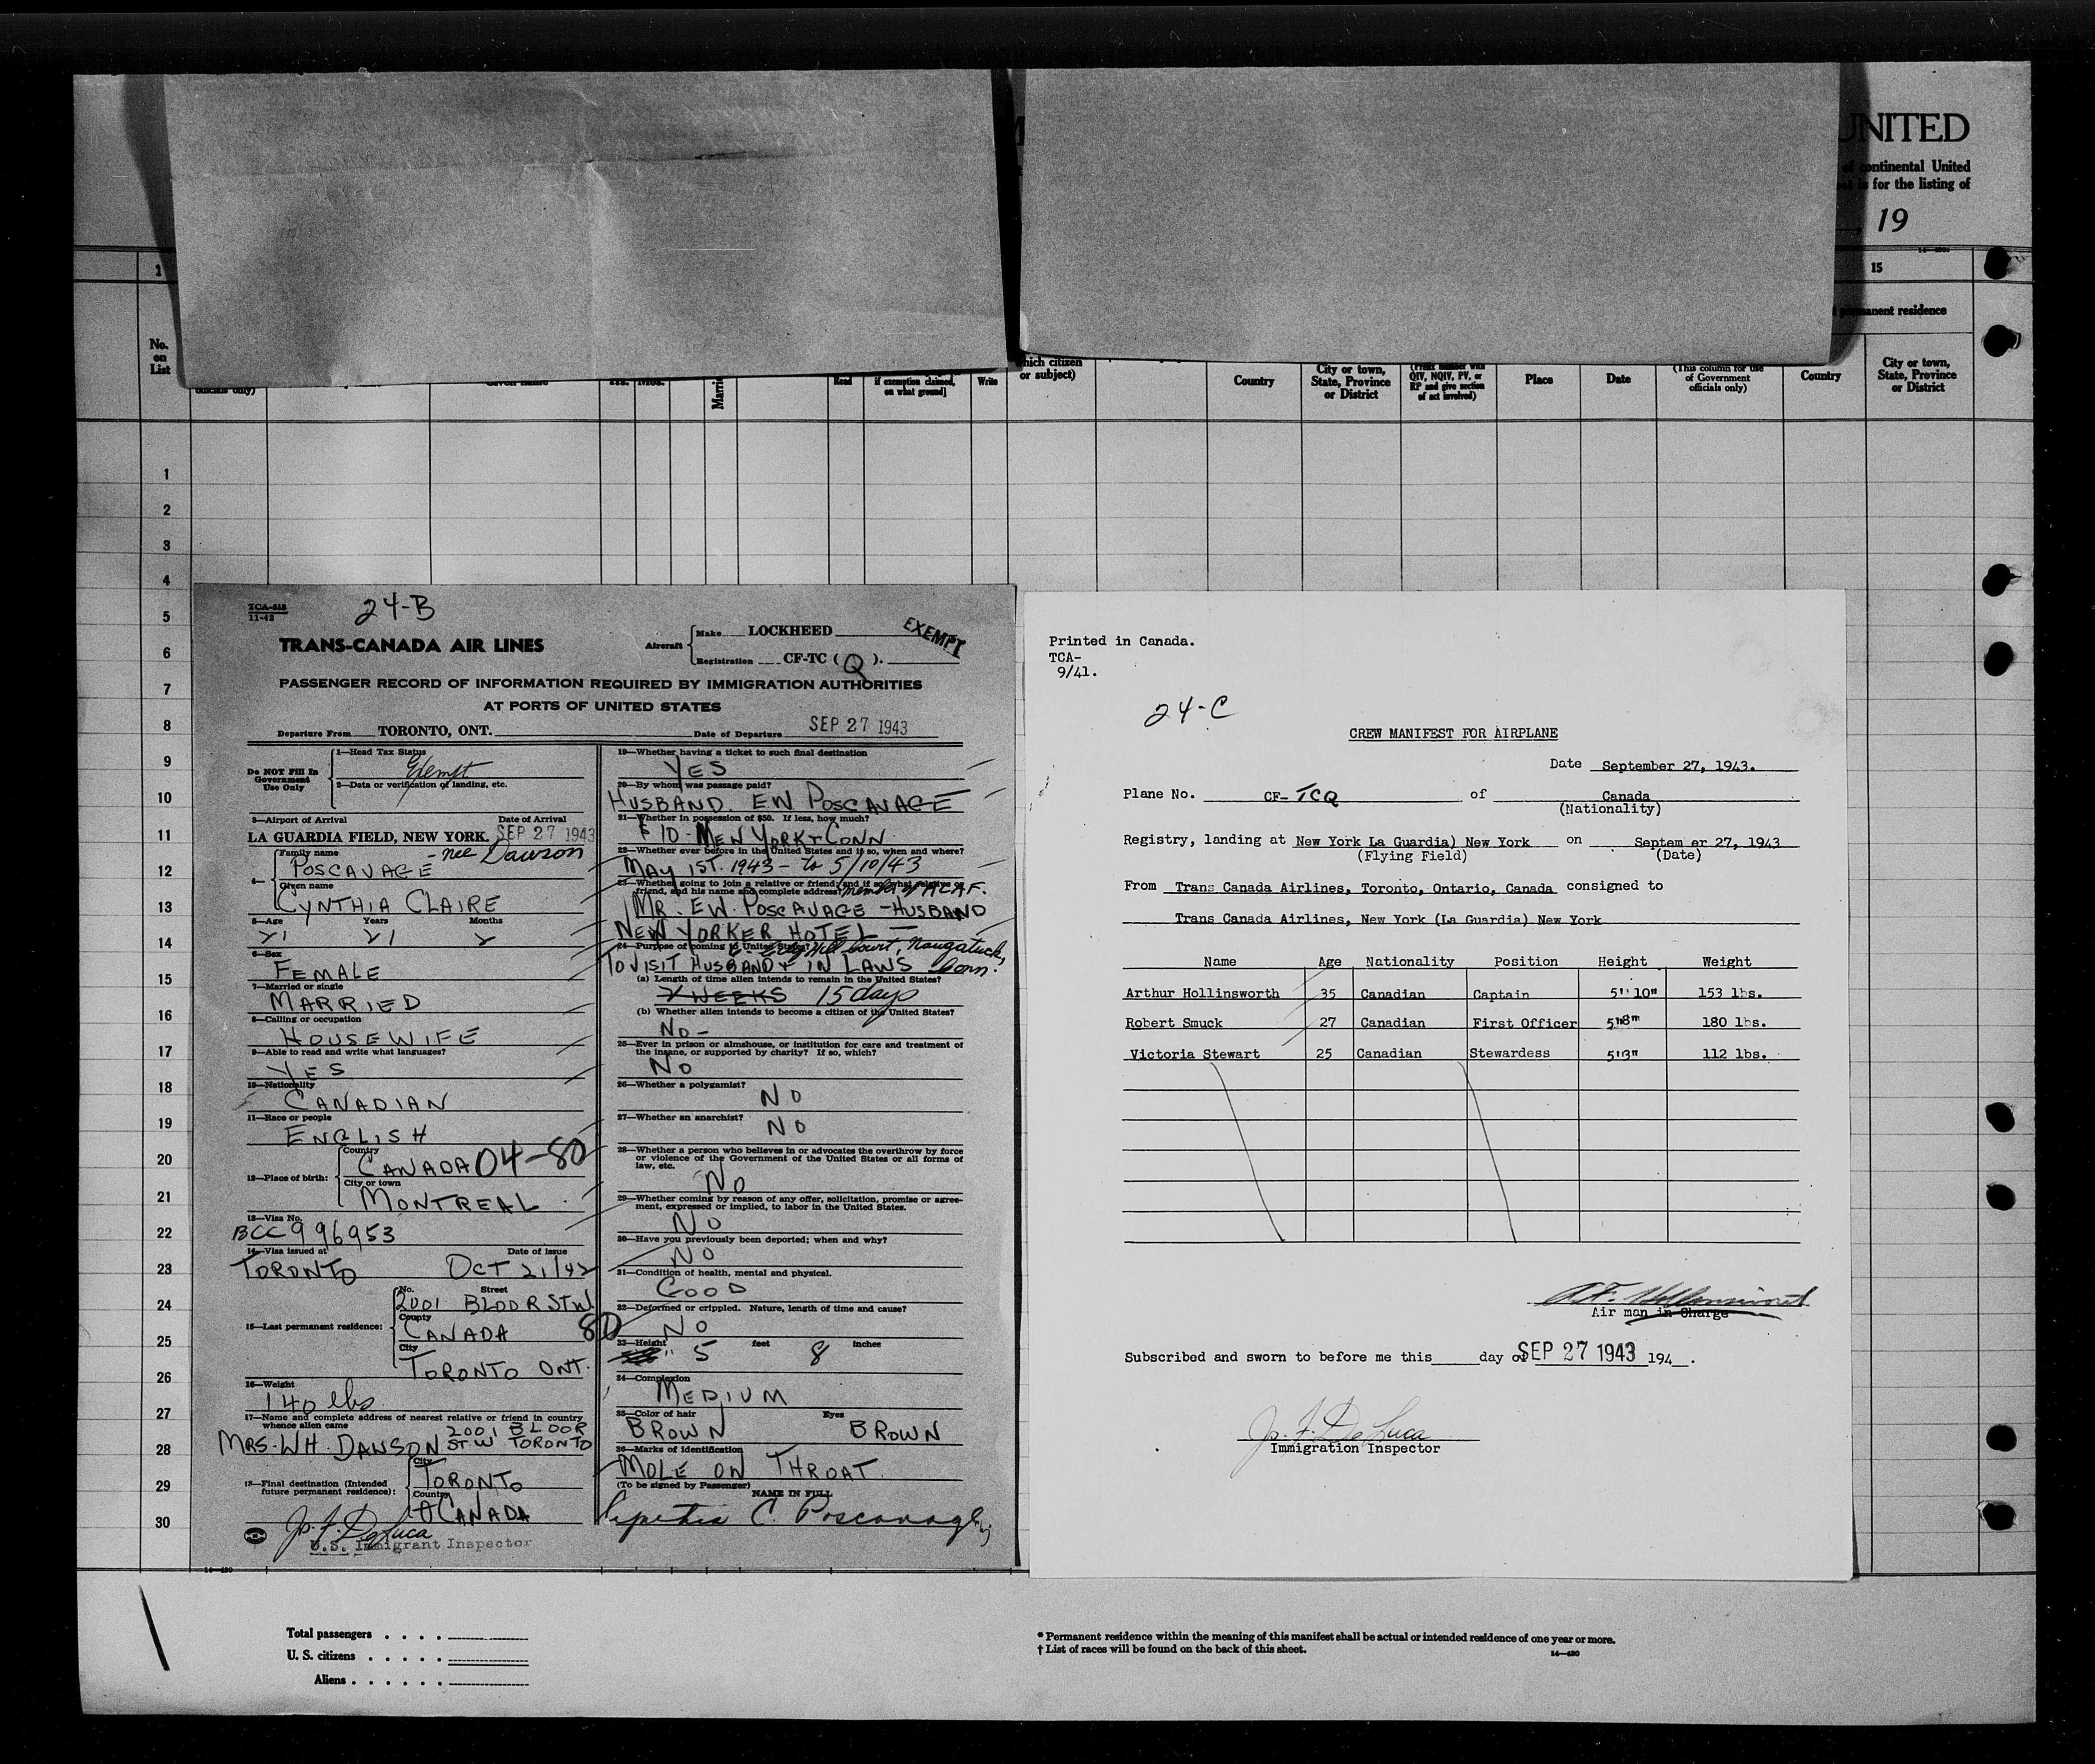 UNITED
continental United
is for the listing of
, 19
1
15
permanent residence
No.
on
List
officials only)
Given name
Yrs. Mos.
Read
if exemption claimed,
on what ground]
Write
which citizen
or subject)
Country
City or town,
State, Province
or District
(Prefix number with
QIV, NQIV, PV, or
RP and give section
of act involved)
Place
Date
(This column for use
of Government
officials only)
Country
City or town,
State, Province
or District
1
2
3
4
5
6
7
8
9
10
11
12
13
14
15
16
17
18
19
20
21
22
23
24
25
26
27
28
29
30
TCA-518
11-42
24-B
TRANS-CANADA AIR LINES
Aircraft
Make LOCKHEED
Registration CF-TC (Q).
EXEMPT
PASSENGER RECORD OF INFORMATION REQUIRED BY IMMIGRATION AUTHORITIES
AT PORTS OF UNITED STATES
Departure From TORONTO, ONT. Date of Departure SEP 27 1943
Do NOT Fill In
Government
Use Only
1—Head Tax Status
Exempt
2—Data or verification of landing, etc.
3—Airport of Arrival Date of Arrival
LA GUARDIA FIELD, NEW YORK. SEP 27 1943
4—
Family name
POSCAVAGE - nee Dawson
Given name
CYNTHIA CLAIRE
5—Age Years Months
21 21 2
6—Sex
FEMALE
7—Married or single
MARRIED
8—Calling or occupation
HOUSEWIFE
9—Able to read and write what languages?
YES
10—Nationality
CANADIAN
11—Race or people
ENGLISH
12—Place of birth:
Country
CANADA 04-80
City or town
MONTREAL
13—Visa No.
BCC 996953
14—Visa issued at Date of issue
TORONTO OCT 21/42
15—Last permanent residence:
No. Street
2001 BLOOR ST W.
County
CANADA 80
City
TORONTO ONT.
16—Weight
140 lbs
17—Name and complete address of nearest relative or friend in country
whence alien came
MRS. WH. DAWSON 2001 BLOOR
ST W TORONTO
18—Final destination (Intended
future permanent residence):
City
TORONTO
Country
CANADA
Jo. F. DeLuca
U.S. Immigrant Inspector
19—Whether having a ticket to such final destination
YES
20—By whom was passage paid?
HUSBAND. EW POSCAVAGE
21—Whether in possession of $50. If less, how much?
$10 - NEW YORK + CONN
22—Whether ever before in the United States and if so, when and where?
MAY 1ST. 1943 - to 5/10/43
23—Whether going to join a relative or friend; and if so, what relative or
friend, and his name and complete address? member of RCAF.
MR. EW. POSCAVAGE - HUSBAND
NEW YORKER HOTEL —
24—Purpose of coming to United States? Hill Court, Naugatuck,
TO VISIT HUSBAND + IN LAWS Conn.
(a) Length of time alien intends to remain in the United States?
2 WEEKS 15 days
(b) Whether alien intends to become a citizen of the United States?
NO -
25—Ever in prison or almshouse, or institution for care and treatment of
the insane, or supported by charity? If so, which?
NO
26—Whether a polygamist?
NO
27—Whether an anarchist?
NO
28—Whether a person who believes in or advocates the overthrow by force
or violence of the Government of the United States or all forms of
law, etc.
NO
29—Whether coming by reason of any offer, solicitation, promise or agree-
ment, expressed or implied, to labor in the United States.
NO
30—Have you previously been deported; when and why?
NO
31—Condition of health, mental and physical.
GOOD
32—Deformed or crippled. Nature, length of time and cause?
NO
33—Height feet inches
5 8
34—Complexion
MEDIUM
35—Color of hair Eyes
BROWN BROWN
36—Marks of identification
MOLE ON THROAT.
(To be signed by Passenger) NAME IN FULL
Cynthia C. Poscavage
Printed in Canada.
TCA-
9/41.
24-C
CREW MANIFEST FOR AIRPLANE
Date September 27, 1943.
Plane No. CF- TCQ of Canada
(Nationality)
Registry, landing at New York La Guardia) New York on Septem er 27, 1943
(Flying Field) (Date)
From Trans Canada Airlines, Toronto, Ontario, Canada consigned to
Trans Canada Airlines, New York (La Guardia) New York
Name Age Nationality Position Height Weight
Arthur Hollinsworth 35 Canadian Captain 5'' 10" 153 lbs.
Robert Smuck 27 Canadian First Officer 5'8" 180 lbs.
Victoria Stewart 25 Canadian Stewardess 5'3" 112 lbs.
Air man in Charge
Subscribed and sworn to before me this day of SEP 27 1943 194 .
Jo. F. DeLuca
Immigration Inspector
Total passengers . . . .
U. S. citizens . . . . .
Aliens . . . . . .
* Permanent residence within the meaning of this manifest shall be actual or intended residence of one year or more.
† List of races will be found on the back of this sheet.
14—430